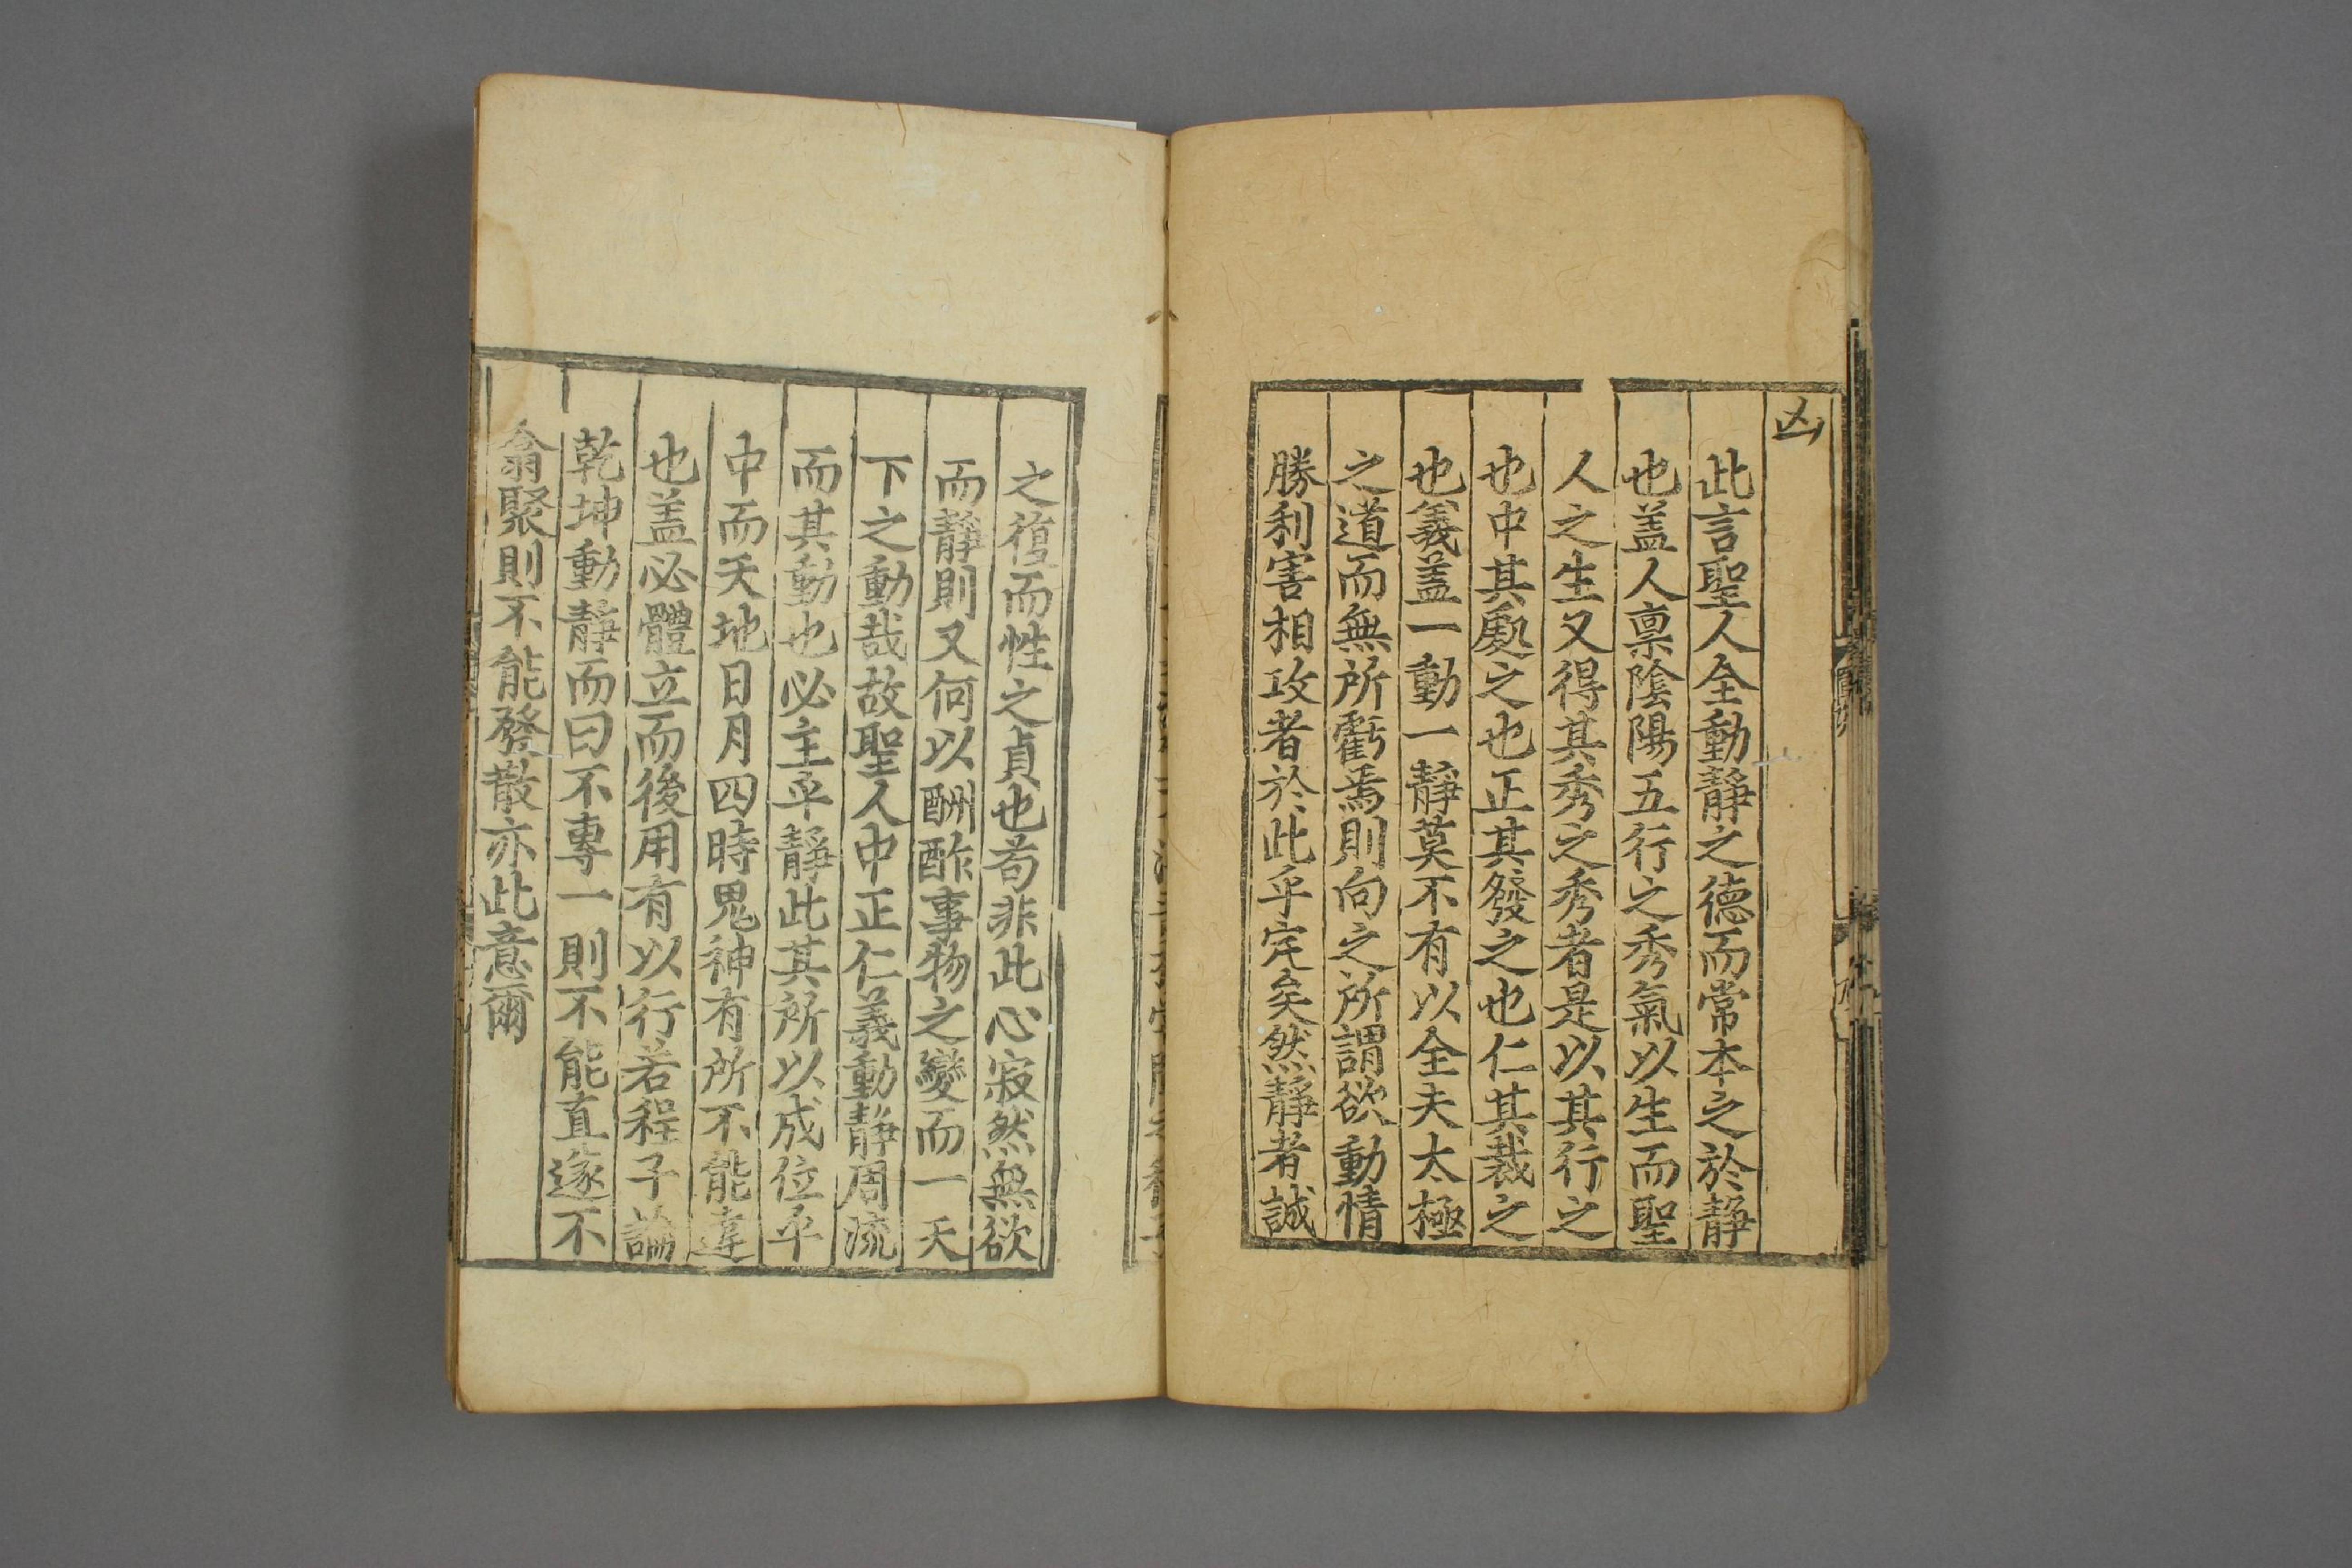 凶
此言聖人全動靜之德而常本之於靜
也盖人禀陰陽五行之秀氣以生而聖
人之生又得其秀之秀者是以其行之
也中其處之也正其發之也仁其裁之
也義盖一動一靜莫不有以全夫太極
之道而無所虧焉則向之所謂欲動情
勝利害相攻者於此乎定矣然靜者誠
之復而性之貞也苟非此心寂然無欲
而靜則又何以酬酢事物之變而一天
下之動哉故聖人中正仁義動靜周流
而其動也必主乎靜此其所以成位乎
中而天地日月四時鬼神有所不能違
也盖必體立而後用有以行若程子論
乾坤動靜而曰不專一則不能直遂不
翕聚則不能發散亦此意爾